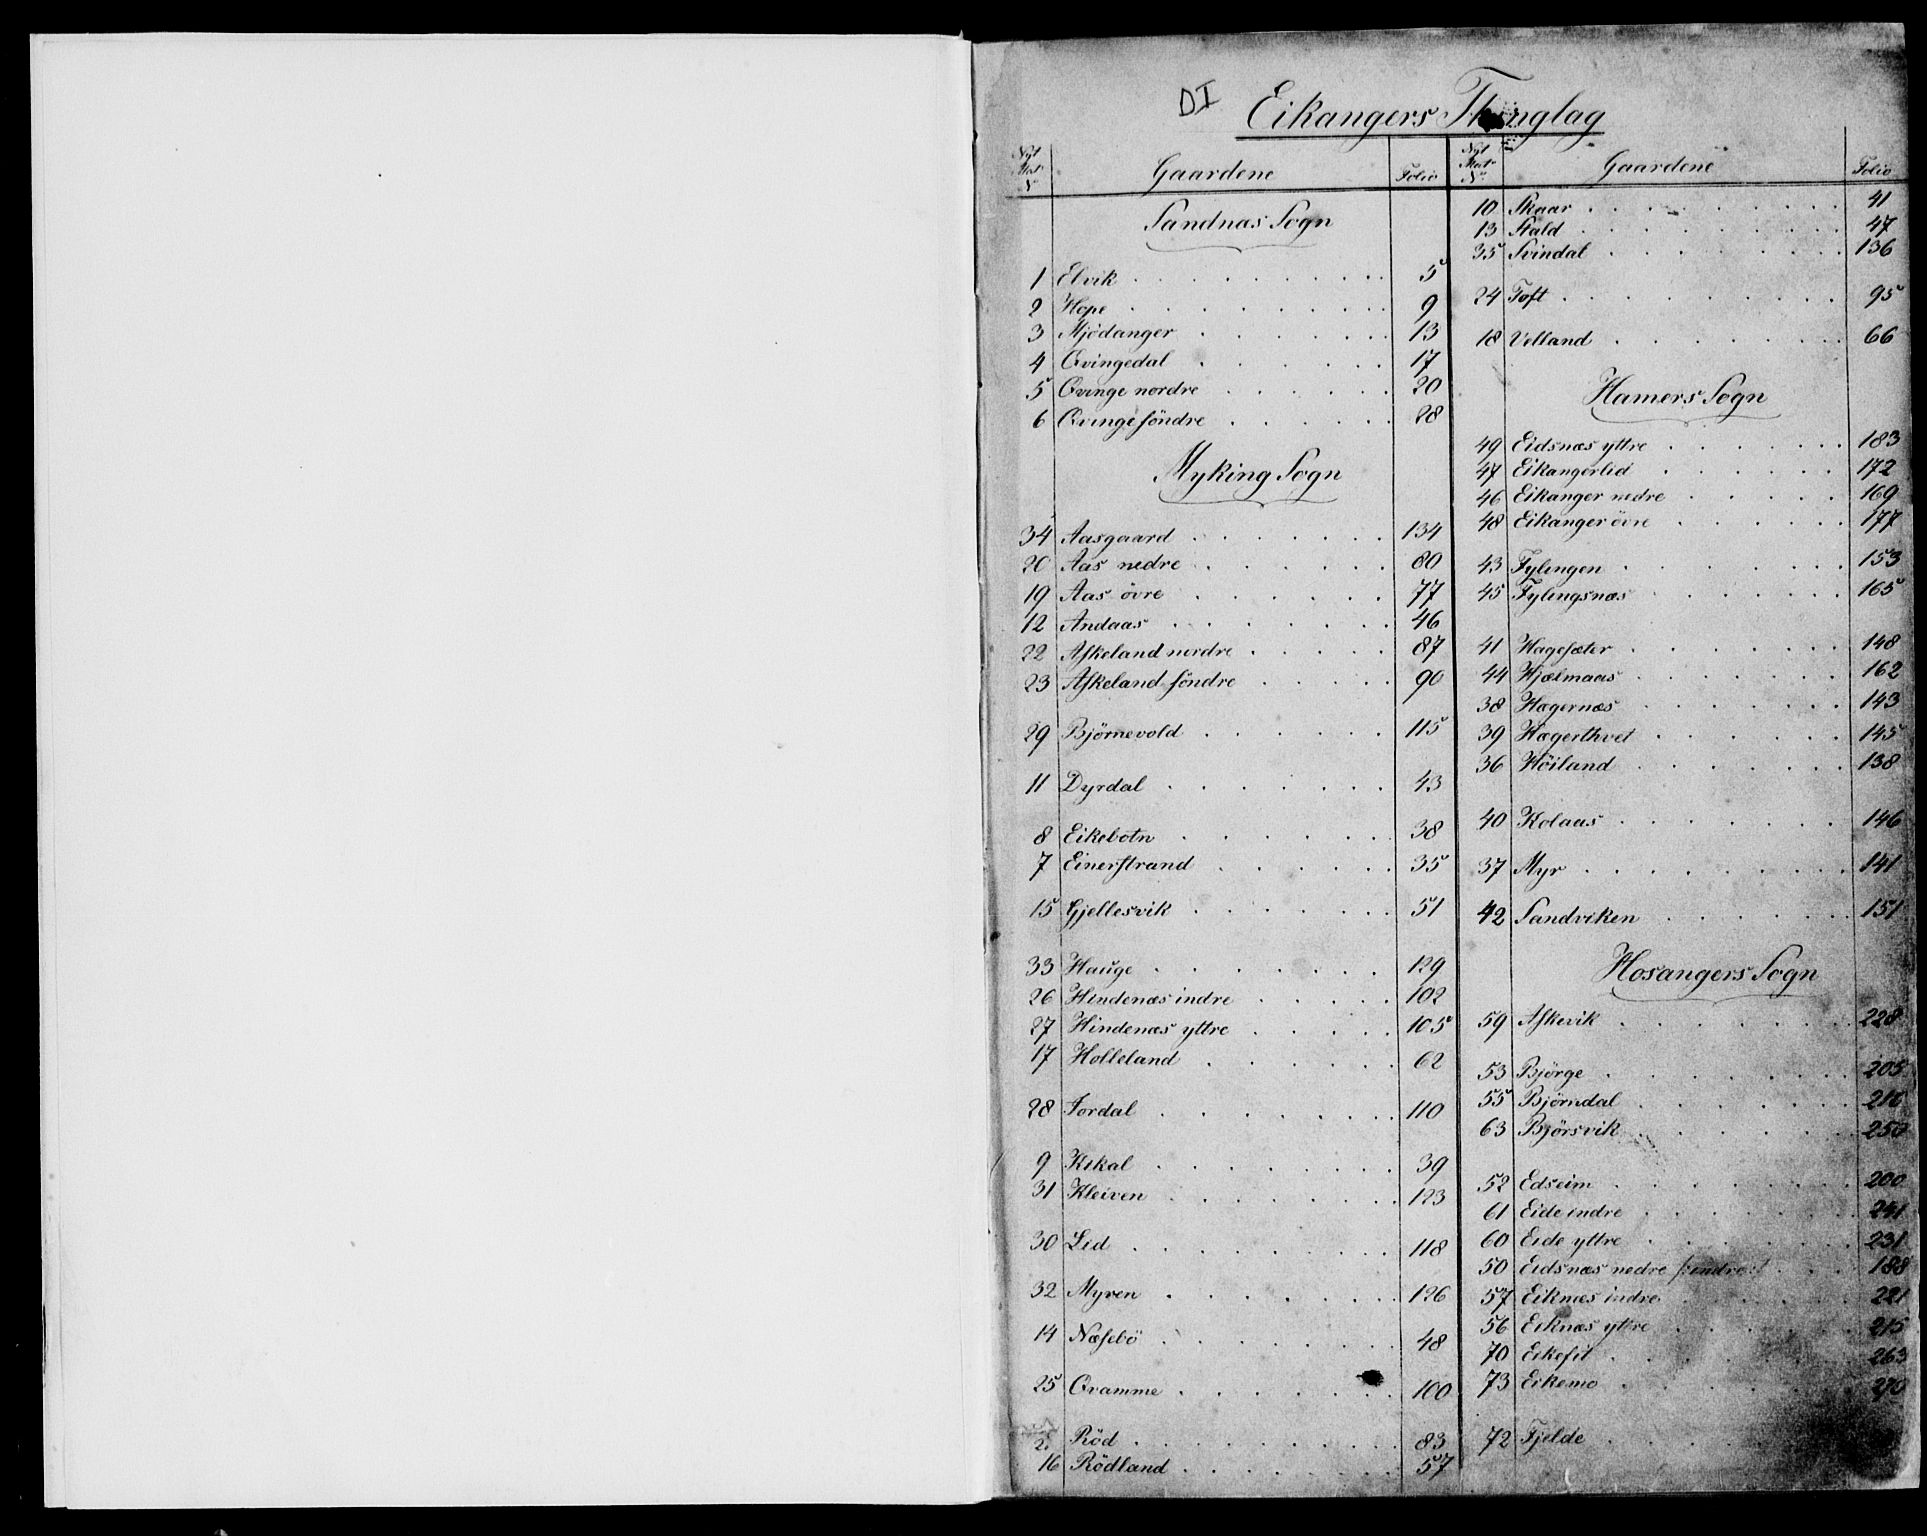 DI
Eikangers Thinglag
Nyt Mat. No
Gaardene
Folio
Sandnæs Sogn
1 Elvik 5
2 Hope 9
3 Mjødanger 13
4 Qvingedal 17
5 Qvinge nordre 20
6 Qvinge søndre 28
Myking Sogn
34 Aasgaard 134
20 Aas nedre 80
19 Aas øvre 77
12 Andaas 46
22 Askeland nordre 87
23 Askeland søndre 90
29 Bjørnevold 115
11 Dyrdal 43
8 Eikebotn 38
7 Einerstrand 35
15 Gjellesvik 51
33 Hauge 129
26 Hindenæs indre 102
27 Hindenæs yttre 105
17 Holleland 62
28 Jordal 110
9 Kikal 39
31 Kleiven 123
30 Lid 118
32 Myren 126
14 Næsebø 48
25 Qvamme 100
2 Rød 83
16 Rødland 57
Nyt Mat. No
Gaardene
Folio
10 Skaar 41
13 Stald 47
35 Svindal 136
24 Toft 95
18 Velland 66
Hamers Sogn
49 Eidsnæs yttre 183
47 Eikangerlid 172
46 Eikanger nedre 169
48 Eikanger øvre 177
43 Fylingen 153
45 Fylingsnæs 165
41 Hagesæter 148
44 Hjælmaas 162
38 Hægernæs 143
39 Hægerthvet 145
36 Høiland 138
40 Kolaas 146
37 Myr 141
42 Sandviken 151
Hosangers Sogn
59 Askevik 228
53 Bjørge 205
55 Bjørndal
63 Bjørsvik 250
52 Edseim 200
61 Eide indre 241
60 Eide yttre 231
50 Eidsnæs nedre /:indre:/ 188
57 Eiknæs indre 221
56 Eiknæs yttre 215
70 Eikefit 263
73 Eikemo 270
72 Fjelde